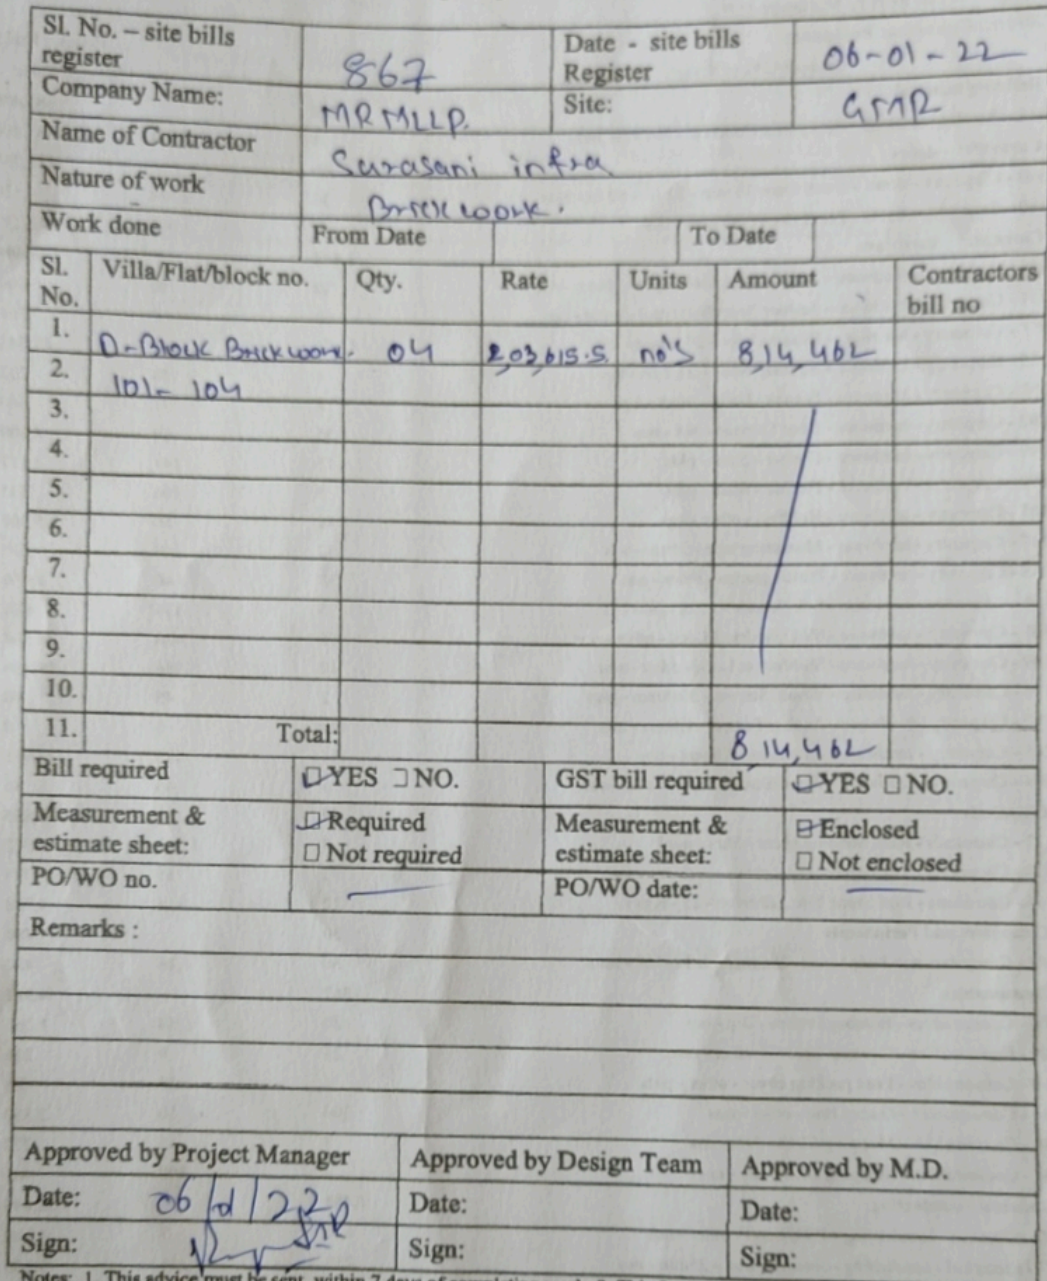 Sl. No. – site bills register 867 Date - site bills Register 06-01-22
Company Name: MRMLLP. Site: GMR
Name of Contractor Surasani infra
Nature of work Brick work.
Work done From Date To Date
Sl. No. Villa/Flat/block no. Qty. Rate Units Amount Contractors bill no
1. D-Block Brick work. 04 2,03,615.5. no's 8,14,462
2. 101- 104
3.
4.
5.
6.
7.
8.
9.
10.
11. Total: 8,14,462
Bill required YES NO. GST bill required YES NO.
Measurement & estimate sheet: Required Measurement & estimate sheet: Enclosed
Not required Not enclosed
PO/WO no. PO/WO date:
Remarks :
Approved by Project Manager Approved by Design Team Approved by M.D.
Date: 06/01/22 Date: Date:
Sign: Sign: Sign:
Notes: 1. This advice must be sent within 7 days of